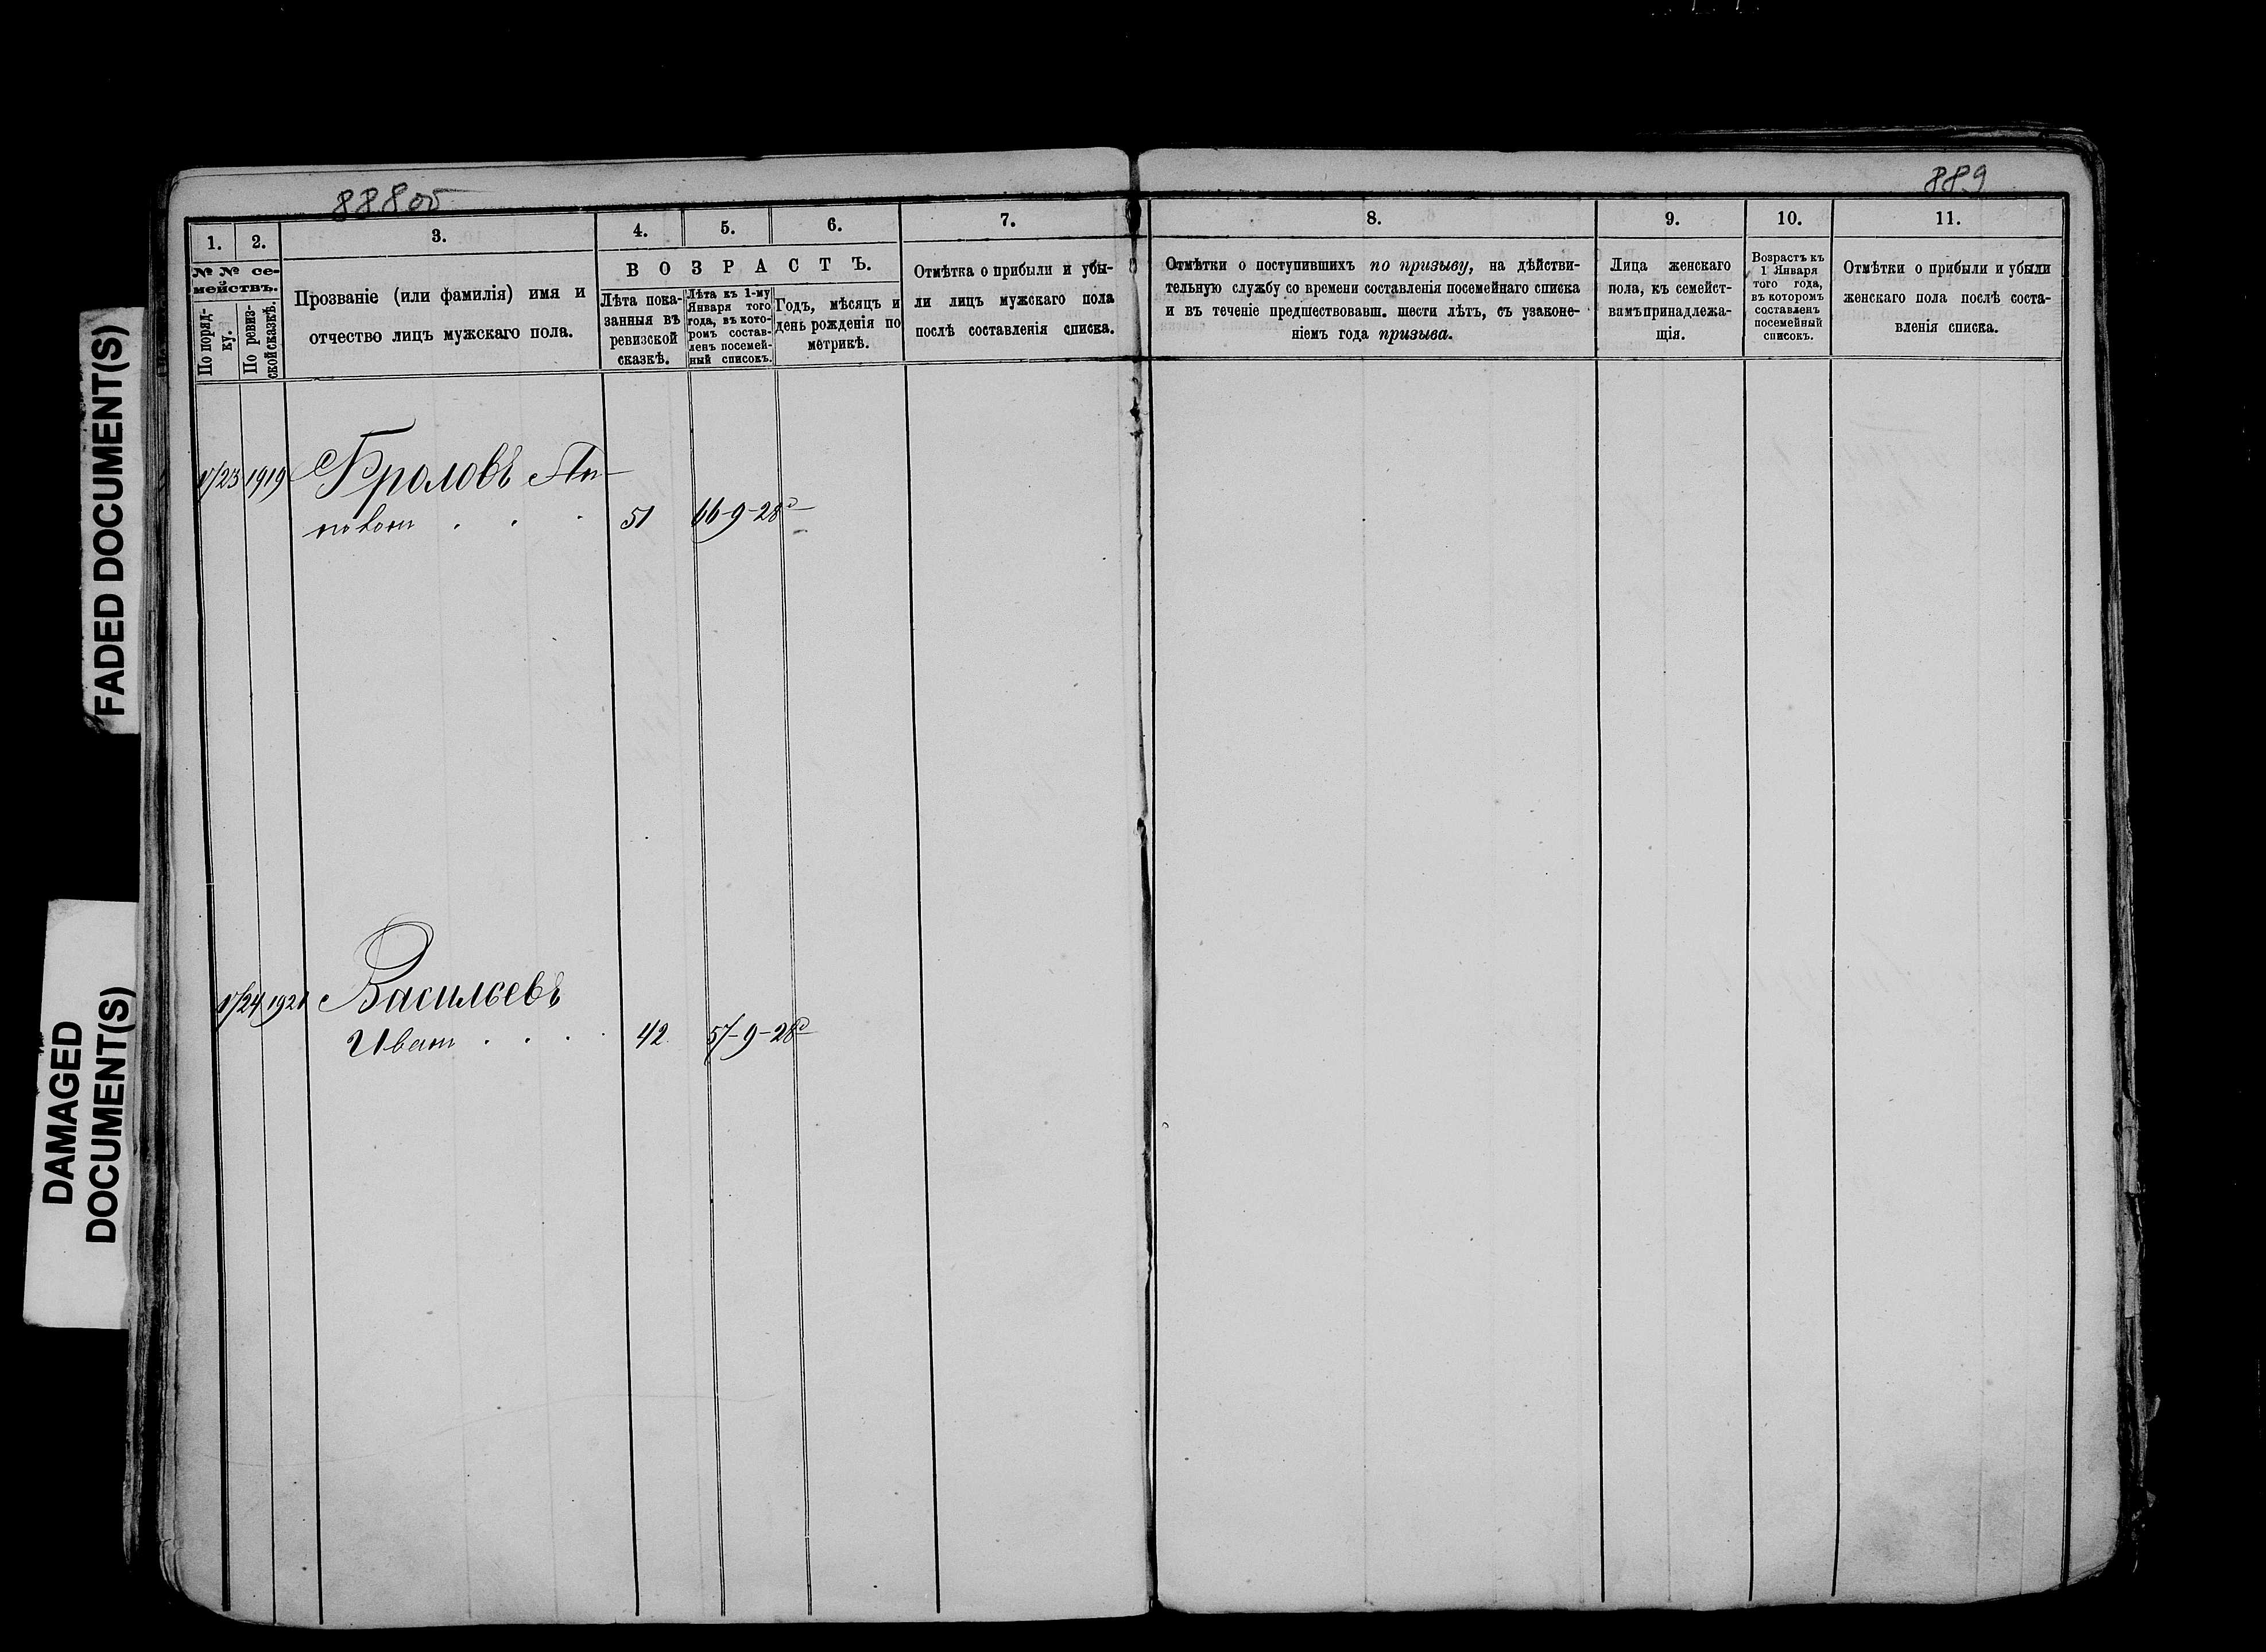 888об
889
1.
2.
3.
4.
5.
6.
7.
8.
9.
10.
11.
№ № се-
мействъ.
По поряд-
ку.
По ревиз-
ской сказкѣ.
Прозваніе (или фамилія) имя и
отчество лицъ мужскаго пола.
ВОЗРАСТЪ.
Лѣта пока-
занныя въ
ревизской
сказкѣ.
Лѣта къ 1-му
Января того
года, въ кото-
ромъ состав-
ленъ посемей-
ный списокъ.
Годъ, мѣсяцъ и
день рожденія по
метрикѣ.
Отмѣтка о прибыли и убы-
ли лицъ мужскаго пола
послѣ составленія списка.
Отмѣтки о поступившихъ по призыву, на дѣйстви-
тельную службу со времени составленія посемейнаго списка
и въ теченіе предшествовавш. шести лѣтъ, съ узаконе-
ніемъ года призыва.
Лица женскаго
пола, къ семейст-
вамъ принадлежа-
щія.
Возрастъ къ
1 Января
того года,
въ которомъ
составленъ
посемейный
списокъ.
Отмѣтки о прибыли и убыли
женскаго пола послѣ соста-
вленія списка.
1723 1919 Фроловъ
51 66-9-28д
1724 1921 Васильевъ
Иванъ . . . 42 57-9-28д
FADED DOCUMENT(S)
DAMAGED
DOCUMENT(S)